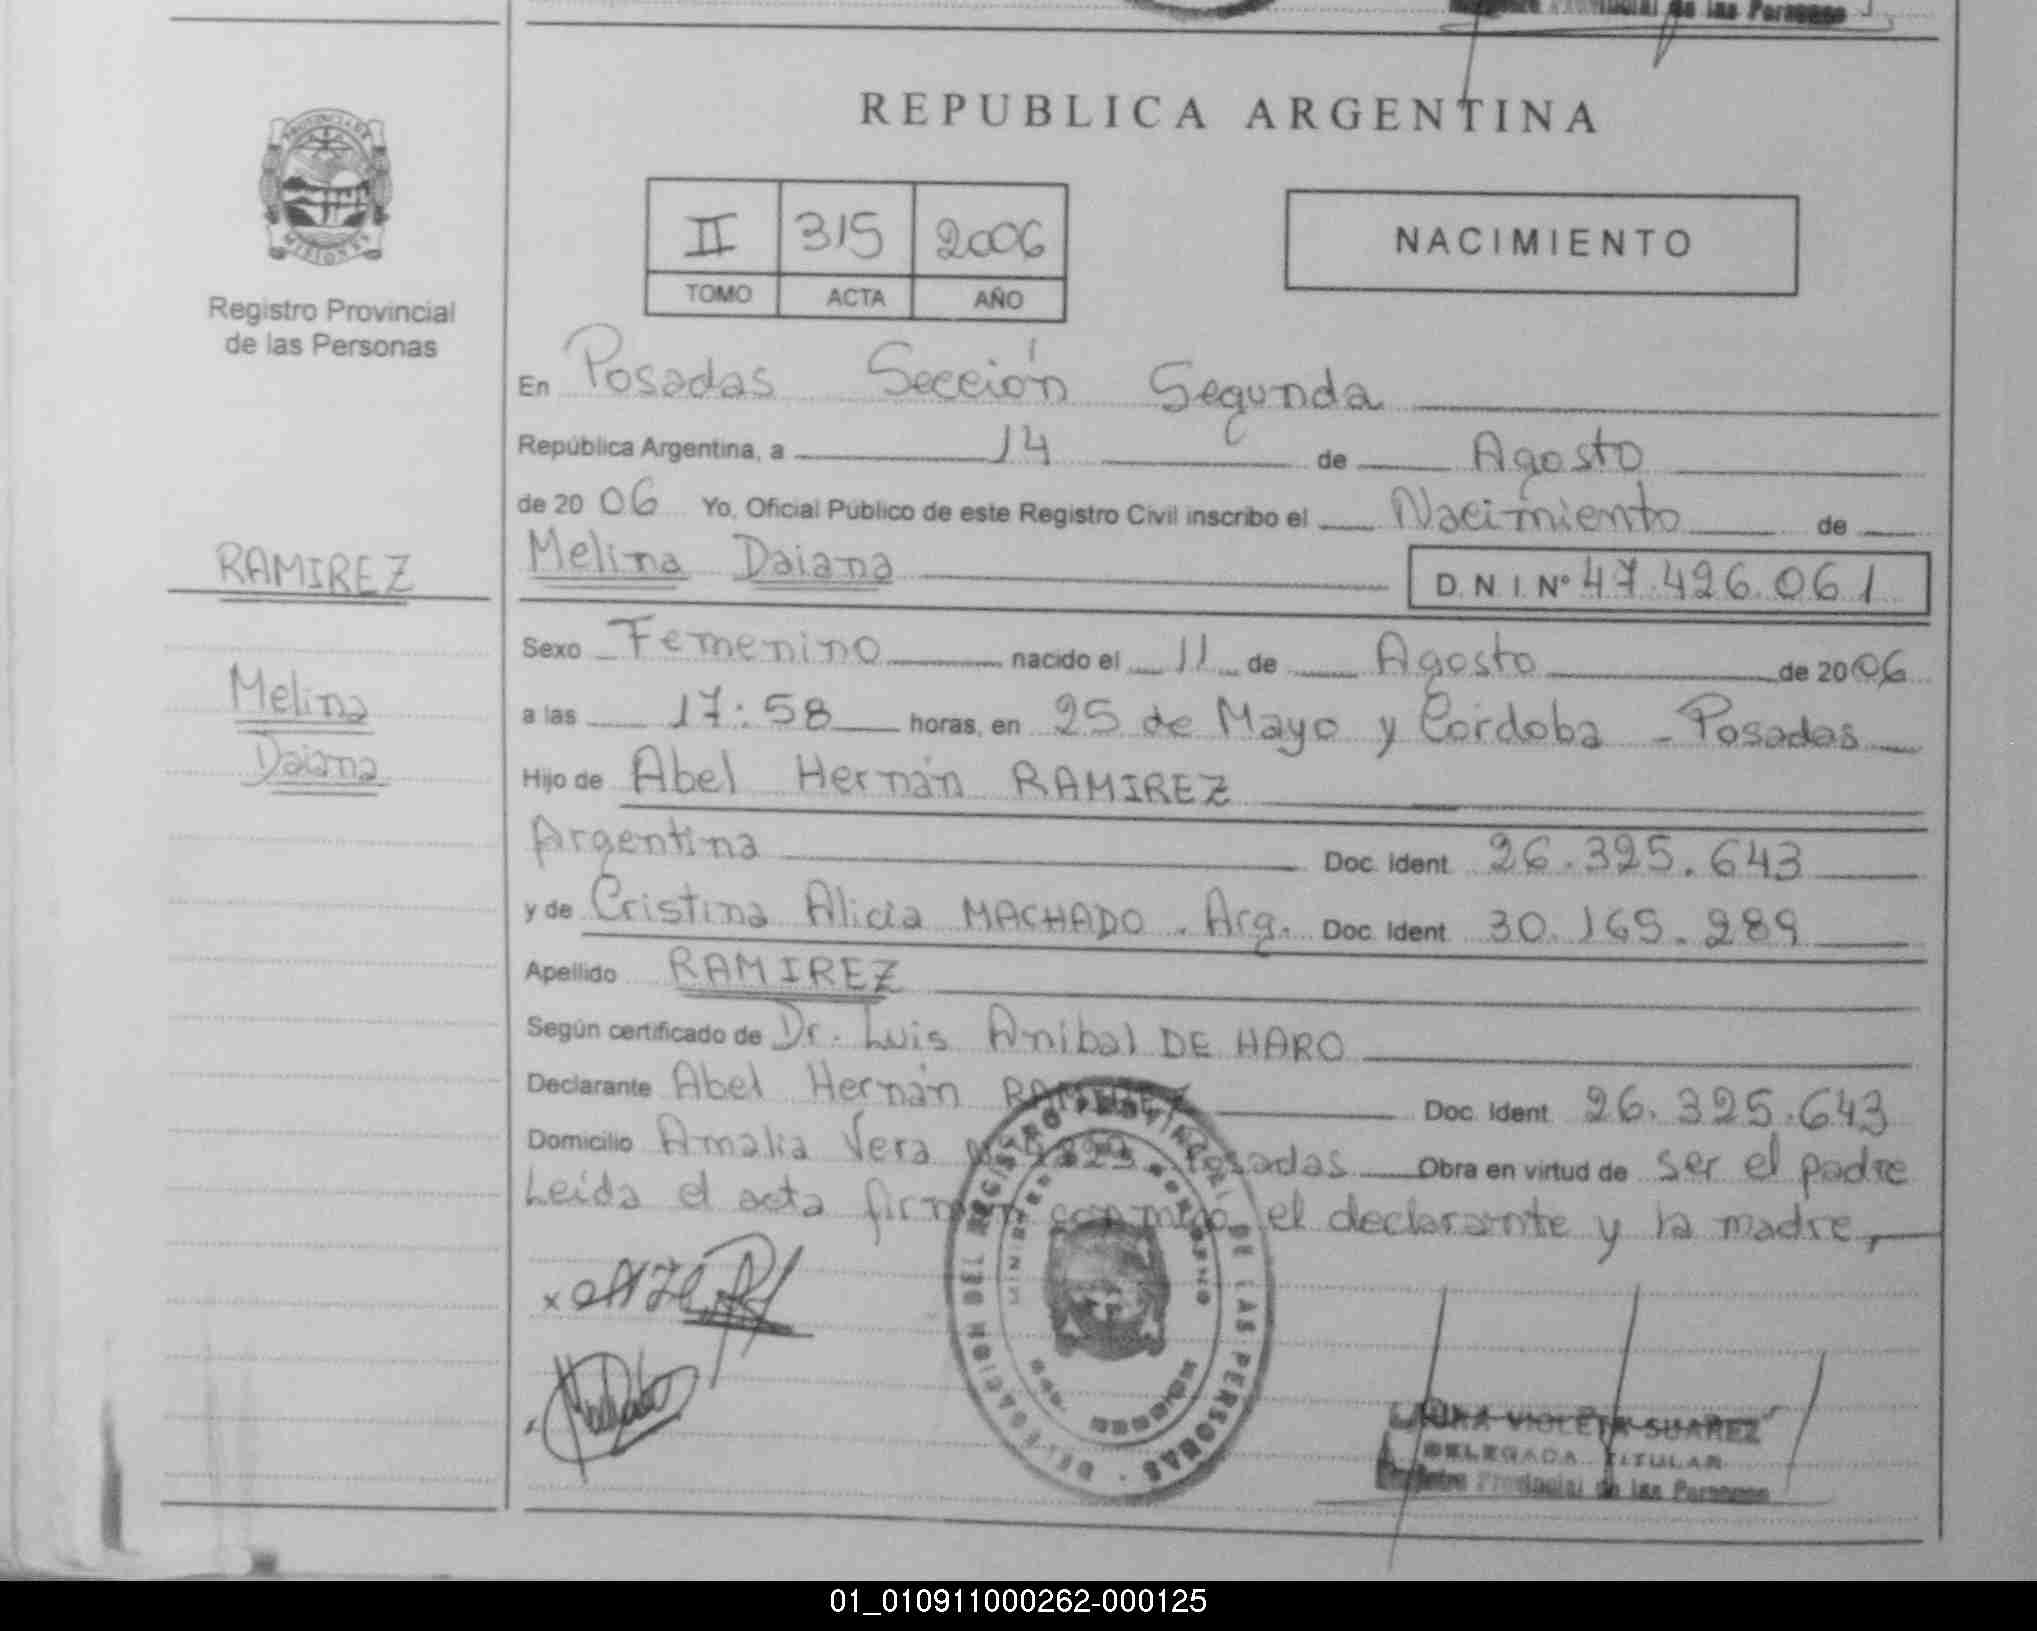 de las Personas
REPUBLICA ARGENTINA
PROVINCIA DE
MISIONES
Registro Provincial
de las Personas
II 315 2006
TOMO ACTA AÑO
NACIMIENTO
En Posadas Sección Segunda
República Argentina, a 14 de Agosto
de 2006 Yo, Oficial Público de este Registro Civil inscribo el Nacimiento de
RAMIREZ
Melina Daiana
D. N. I. Nº 47.426.061
Sexo Femenino nacido el 11 de Agosto de 2006
Melina
Daiana
a las 17:58 horas, en 25 de Mayo y Córdoba - Posadas
Hijo de Abel Hernán RAMIREZ
Argentina Doc. Ident. 26.325.643
y de Cristina Alicia MACHADO. Arg. Doc. Ident. 30.165.289
Apellido RAMIREZ
Según certificado de Dr. Luis Anibal DE HARO
Declarante Abel Hernán RAMIREZ Doc. Ident. 26.325.643
Domicilio Amalia Vera Posadas Obra en virtud de ser el padre
Leída el acta firman conmigo el declarante y la madre,
DELEGACION DEL REGISTRO PROVINCIAL DE LAS PERSONAS
LAURA VIOLETA SUAREZ
DELEGADA TITULAR
Registro Provincial de las Personas
01_010911000262-000125